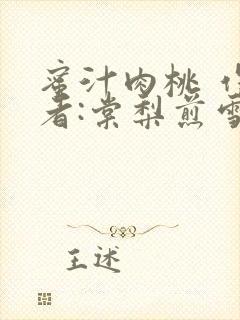 蜜汁肉桃 
者:棠梨煎雪
王述